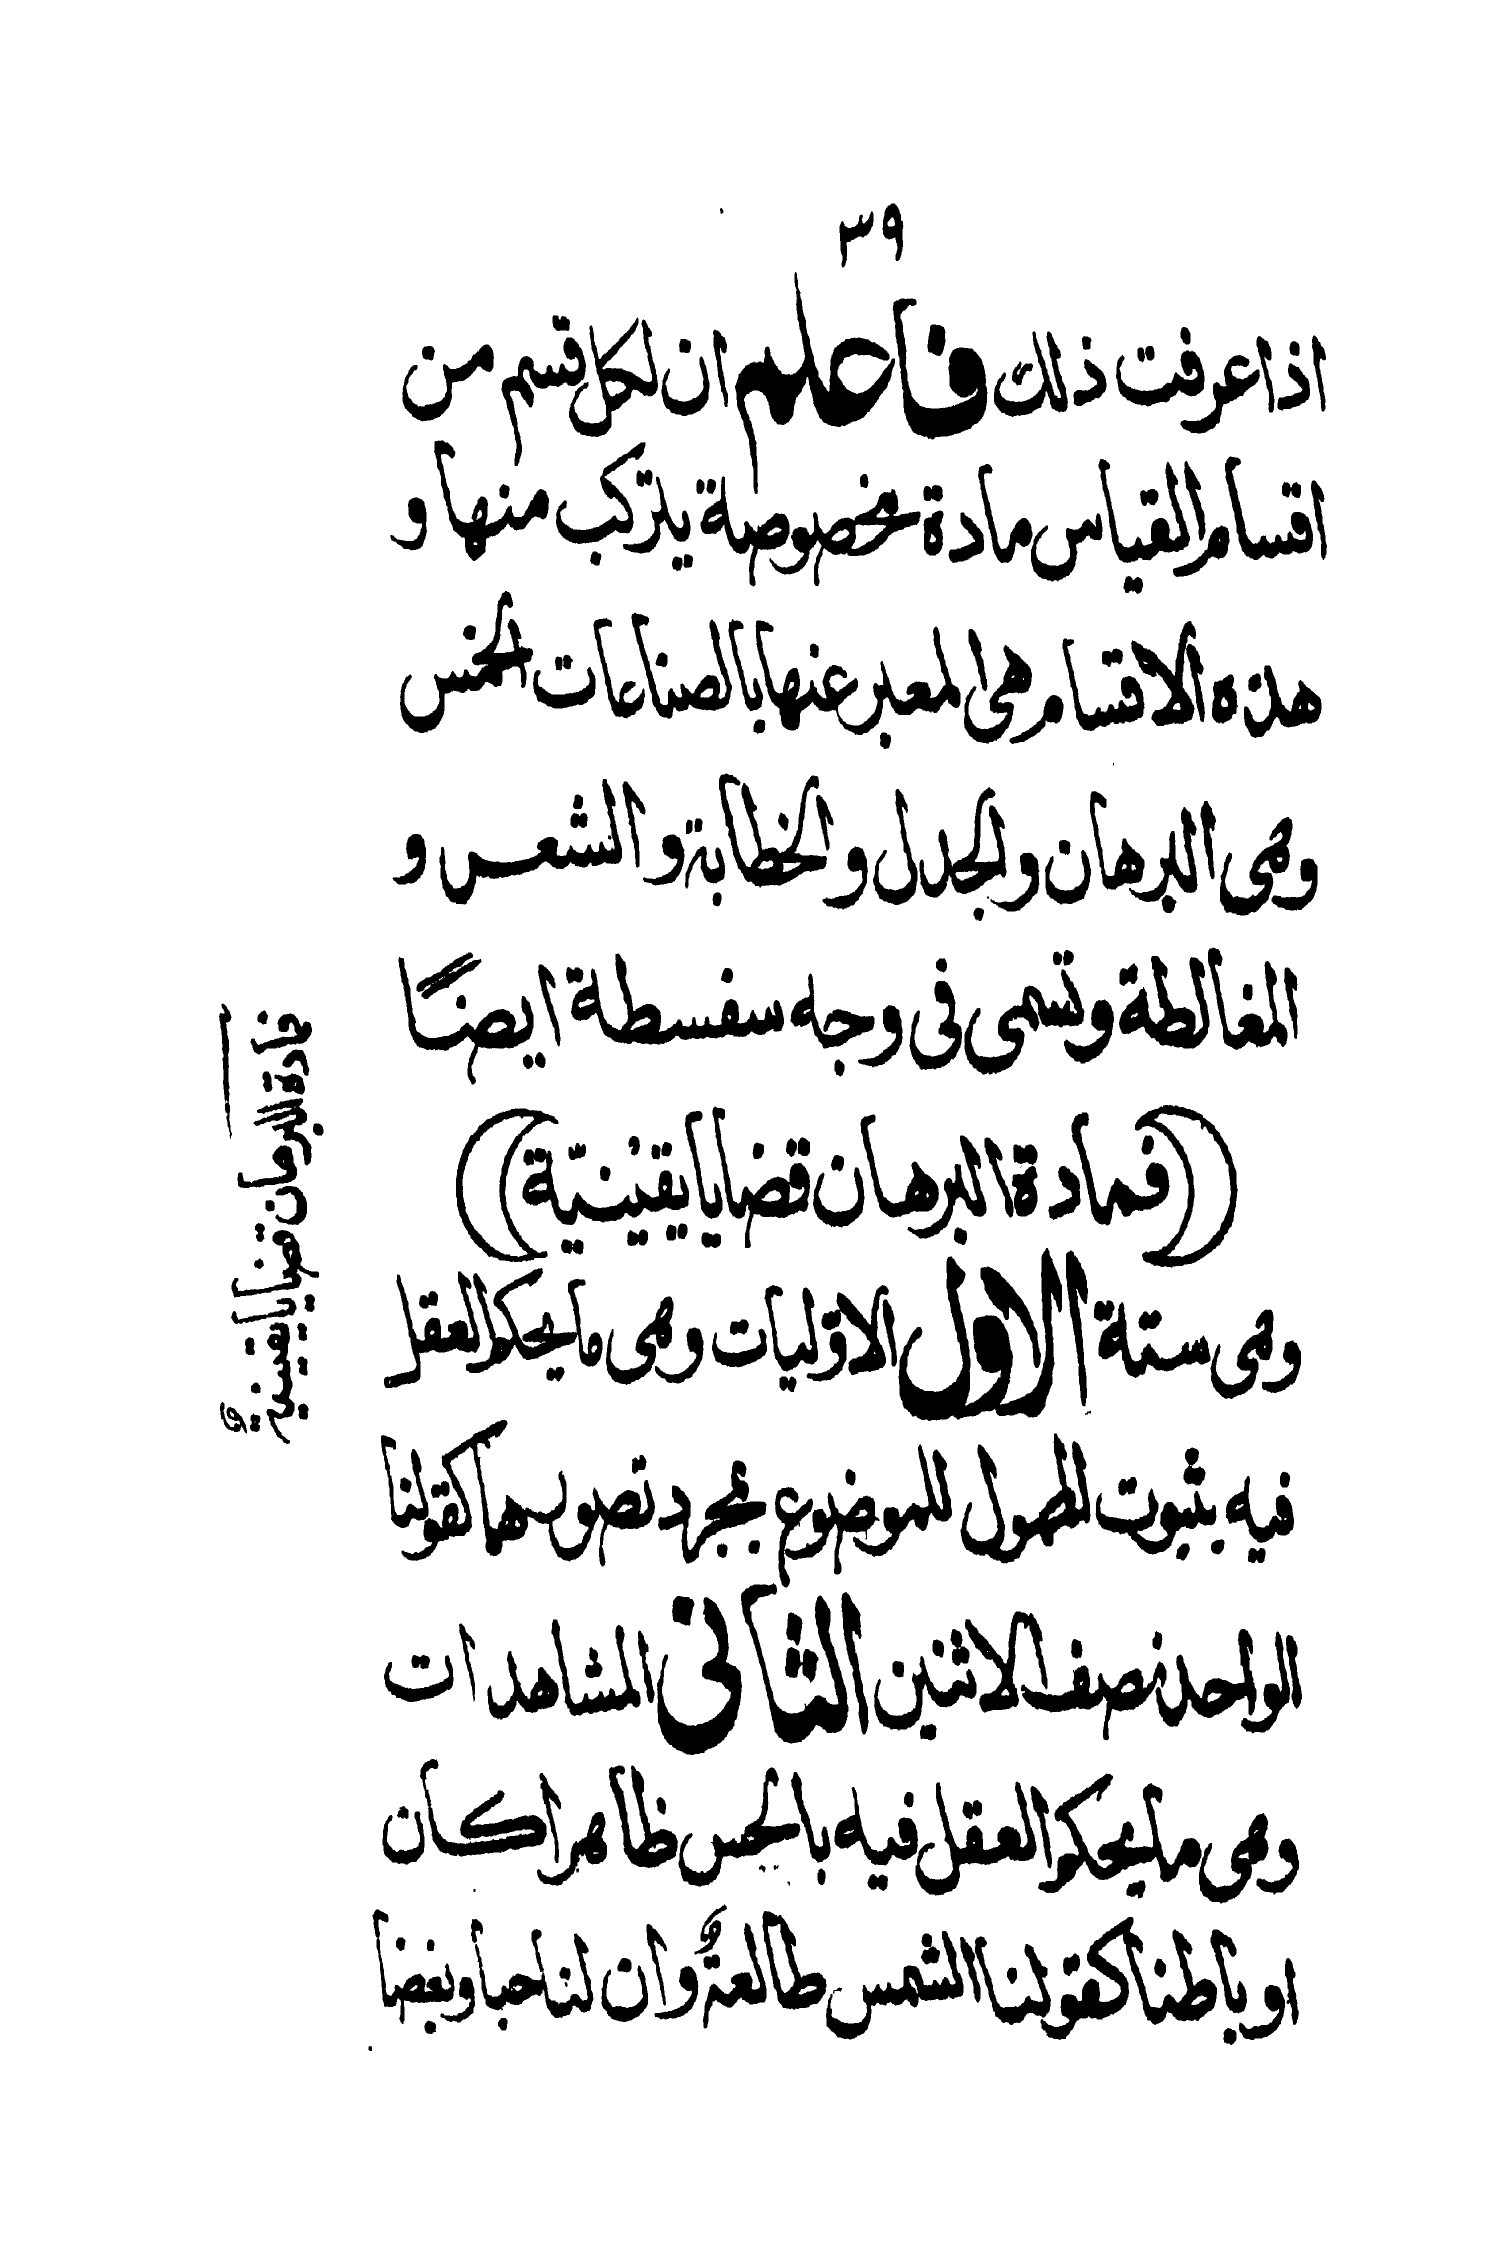 ٣٩
اذا عرفت ذلك فاعلم ان لكل قسم من
اقسام القياس مادة مخصوصة يتركب منها و
هذه الاقسام هى المعبر عنها بالصناعات الخمس
وهى البرهان والجدل والخطابة والشعر و
المغالطة وتسمى فى وجه سفسطة ايضًا
(فمادة البرهان قضايا يقينيّة)
وهى ستة الاول الاوّليات وهى ما يحكم العقل
فيه بثبوت المحمول للموضوع بمجرد تصورهما كقولنا
الواحد نصف الاثنين الثانى المشاهدات
وهى ما يحكم العقل فيه بالحس ظاهرا كان
او باطنا كقولنا الشمس طالعةٌ وان لنا حبا وبغضا
مادة البرهان قضايا يقينيةٌ